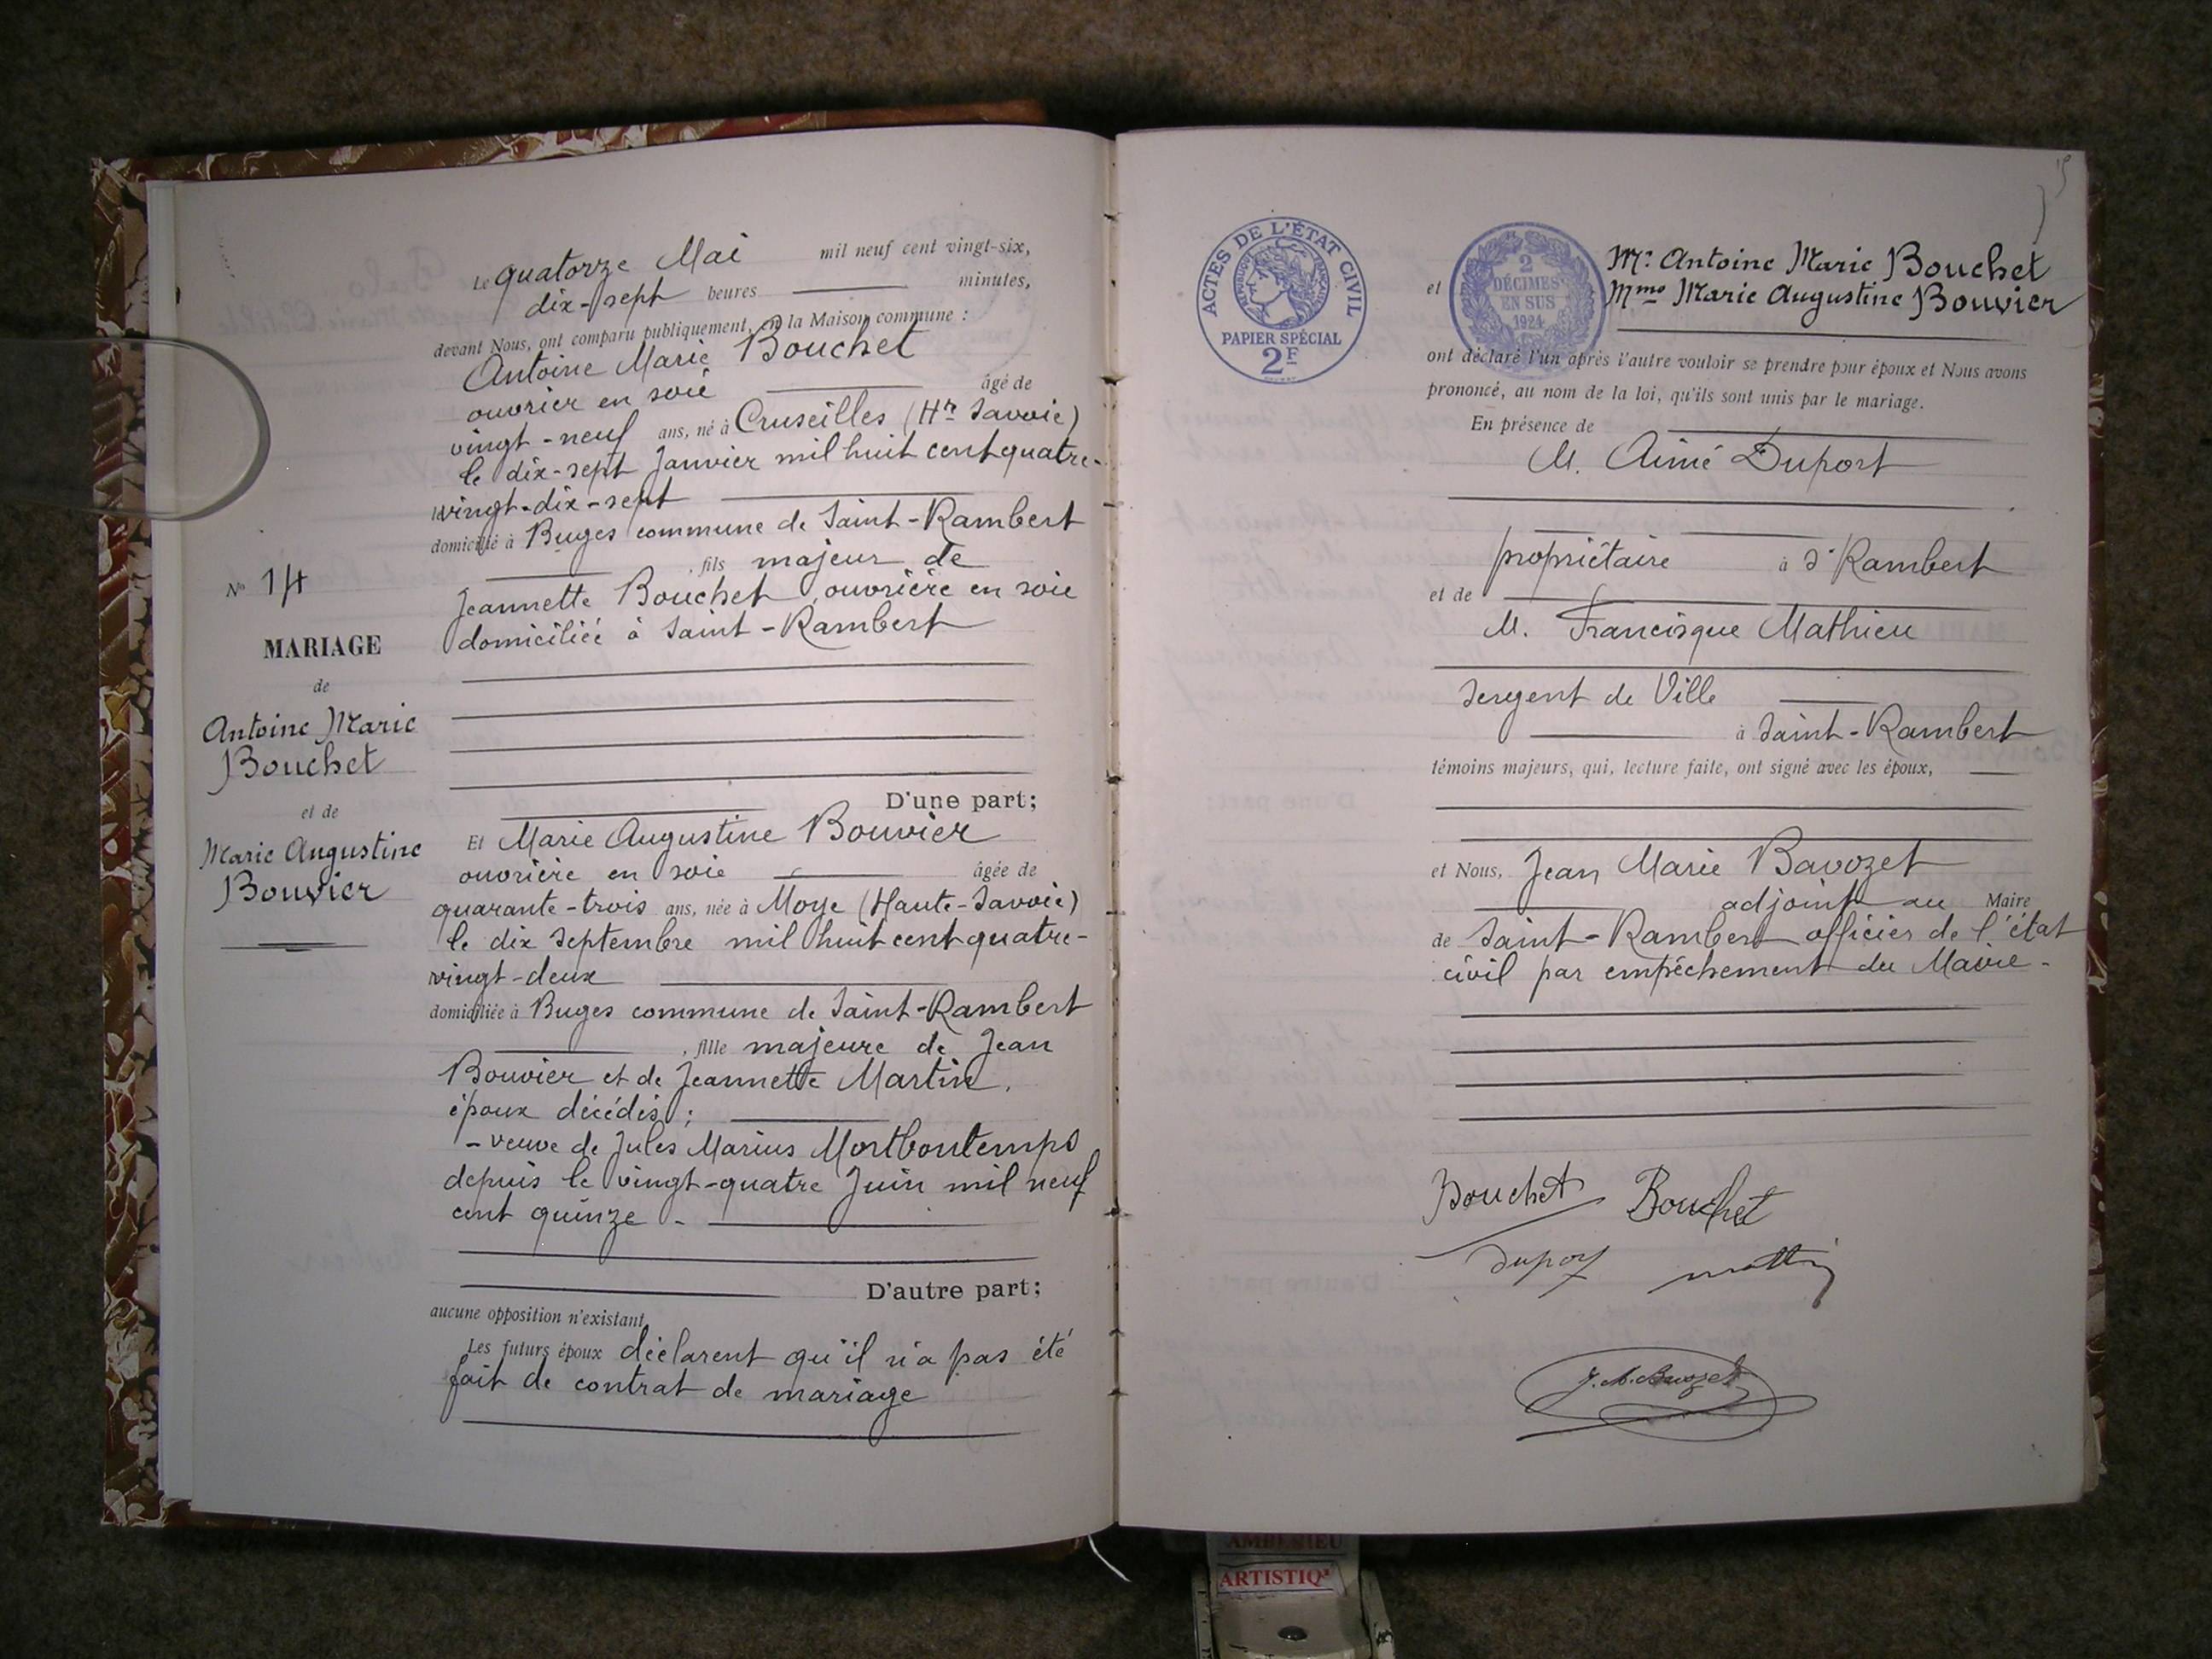 Le quatorze Mai mil neuf cent vingt-six,
dix-sept heures minutes,
devant Nous, ont comparu publiquement, en la Maison commune :
Antoine Marie Bouchet
ouvrier en soie âgé de
vingt-neuf ans, né à Cruseilles (Hte Savoie)
le dix-sept Janvier mil huit cent quatre-
vingt-dix-sept
domicilié à Buges commune de Saint-Rambert
, fils majeur de
Jeannette Bouchet, ouvrière en soie
domiciliée à Saint-Rambert
D'une part;
Et Marie Augustine Bouvier
ouvrière en soie âgée de
quarante-trois ans, née à Moye (Haute-Savoie)
le dix Septembre mil huit cent quatre-
vingt-deux
domiciliée à Buges commune de Saint-Rambert
, fille majeure de Jean
Bouvier et de Jeannette Martin,
époux décédés ;
- veuve de Jules Marius Montbontemps
depuis le vingt-quatre Juin mil neuf
cent quinze -
D'autre part;
aucune opposition n'existant
Les futurs époux déclarent qu'il n'a pas été
fait de contrat de mariage
No 14
MARIAGE
de
Antoine Marie
Bouchet
et de
Marie Augustine
Bouvier
ACTES DE L'ÉTAT CIVIL
RÉPUBLIQUE FRANÇAISE
PAPIER SPÉCIAL
2F
2
DÉCIMES
EN SUS
1924
et Mr Antoine Marie Bouchet
Mme Marie Augustine Bouvier
ont déclaré l'un après l'autre vouloir se prendre pour époux et Nous avons
prononcé, au nom de la loi, qu'ils sont unis par le mariage.
En présence de
M. Aimé Duport
propriétaire à St Rambert
et de
M. Francisque Mathieu
Sergent de Ville
à Saint-Rambert
témoins majeurs, qui, lecture faite, ont signé avec les époux,
et Nous, Jean Marie Bavozet
adjoint au Maire
de Saint-Rambert officier de l'état
civil par empêchement du Maire -
Bouchet Bouchet
Duport
J. M. Bavozet
AMBÉRIEU
ARTISTIQ